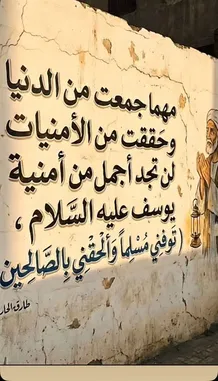 مهما جمعت من الدنيا
وحَققت من الأمنيات
لن تجد أجمل من أمنية
يوسف عليه السَّلام ،
تَوفني مُسْلِماً وَأَلْحقْنِي بِالصَّالِحِين